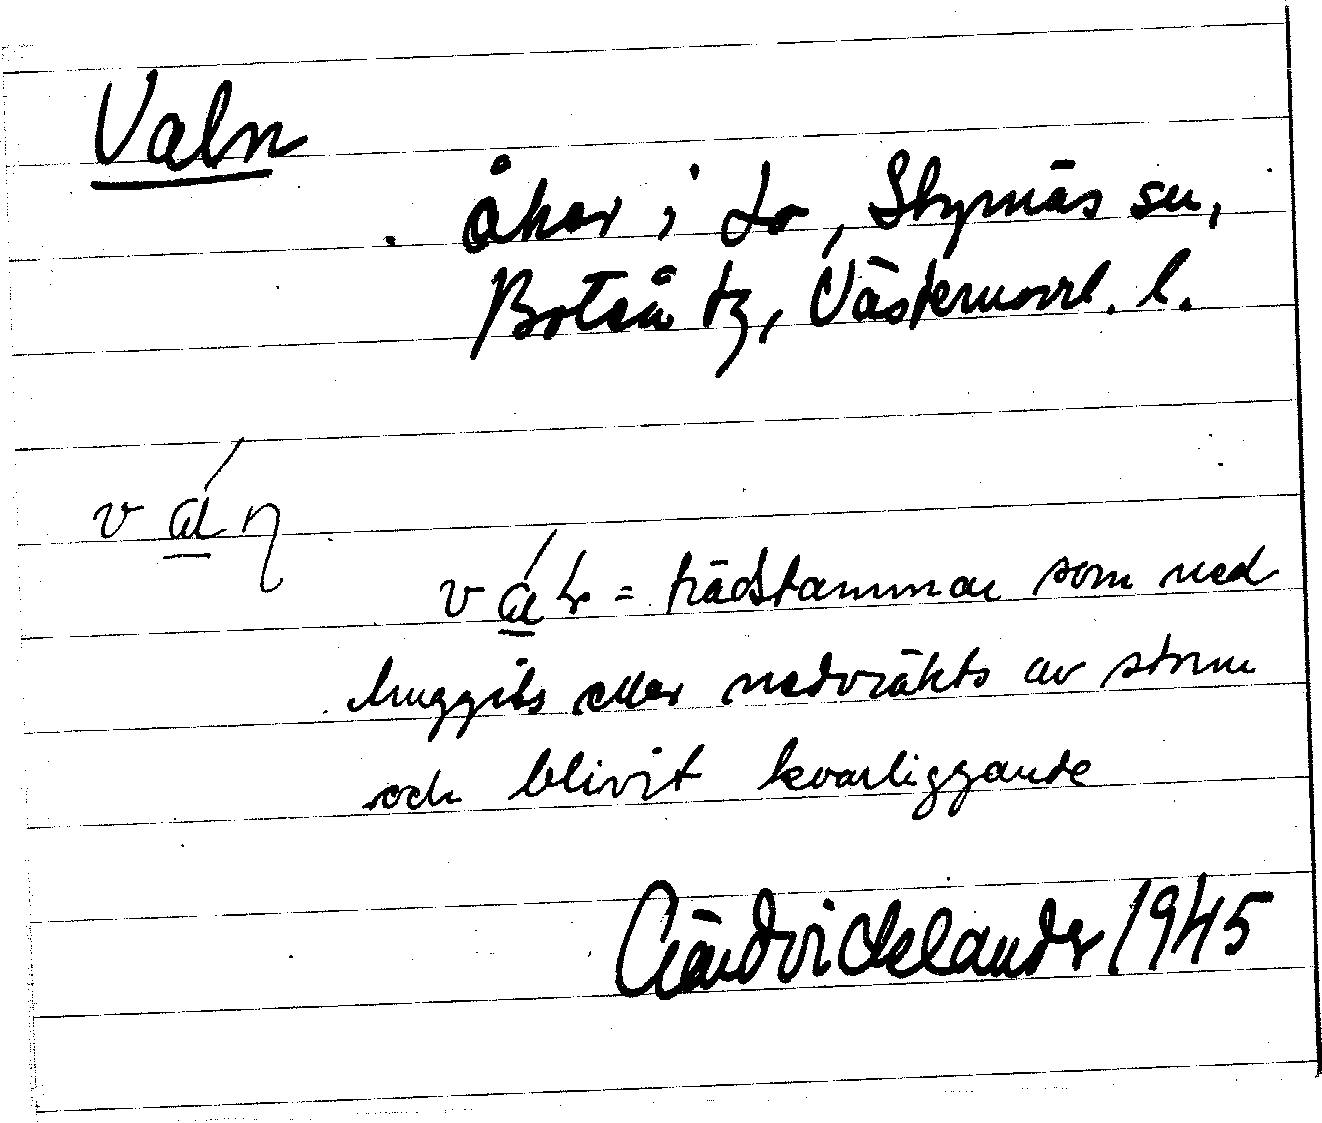 Valn
åker i Lo, Styrnäs sn,
Boteå tg, Västernorrl. l.
v a̲̍ ɳ
v a̲̍ ɽ = trädstammar som ned
huggits eller nedvräkts av storm
och blivit kvarliggande
1945